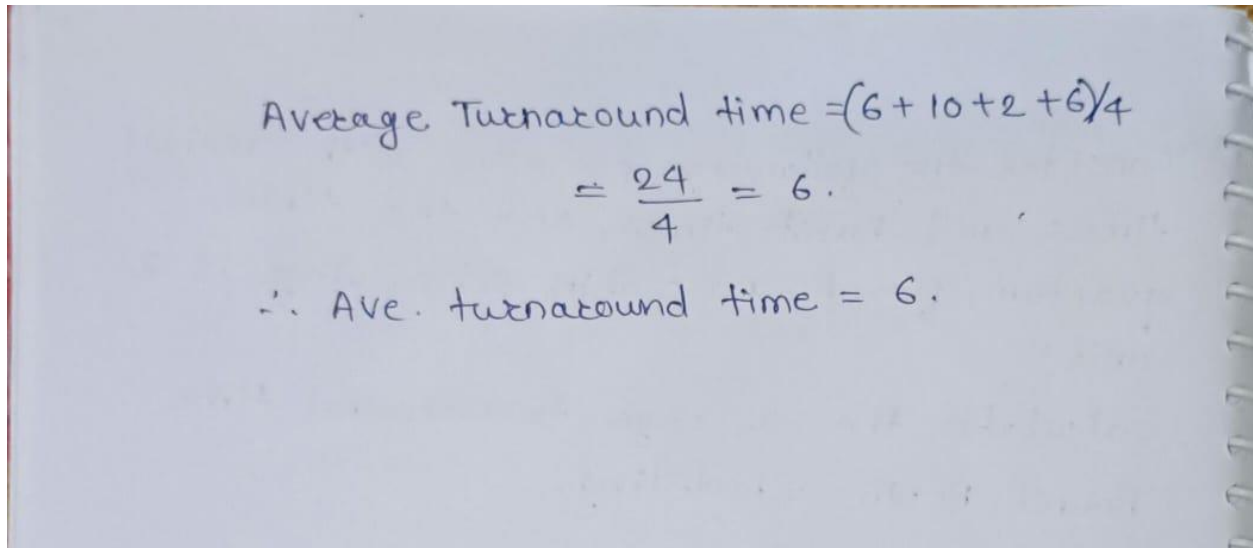 Average Turnaround time =(6+10+2+6)/4
= 24/4 = 6.
∴ Ave. turnaround time = 6.